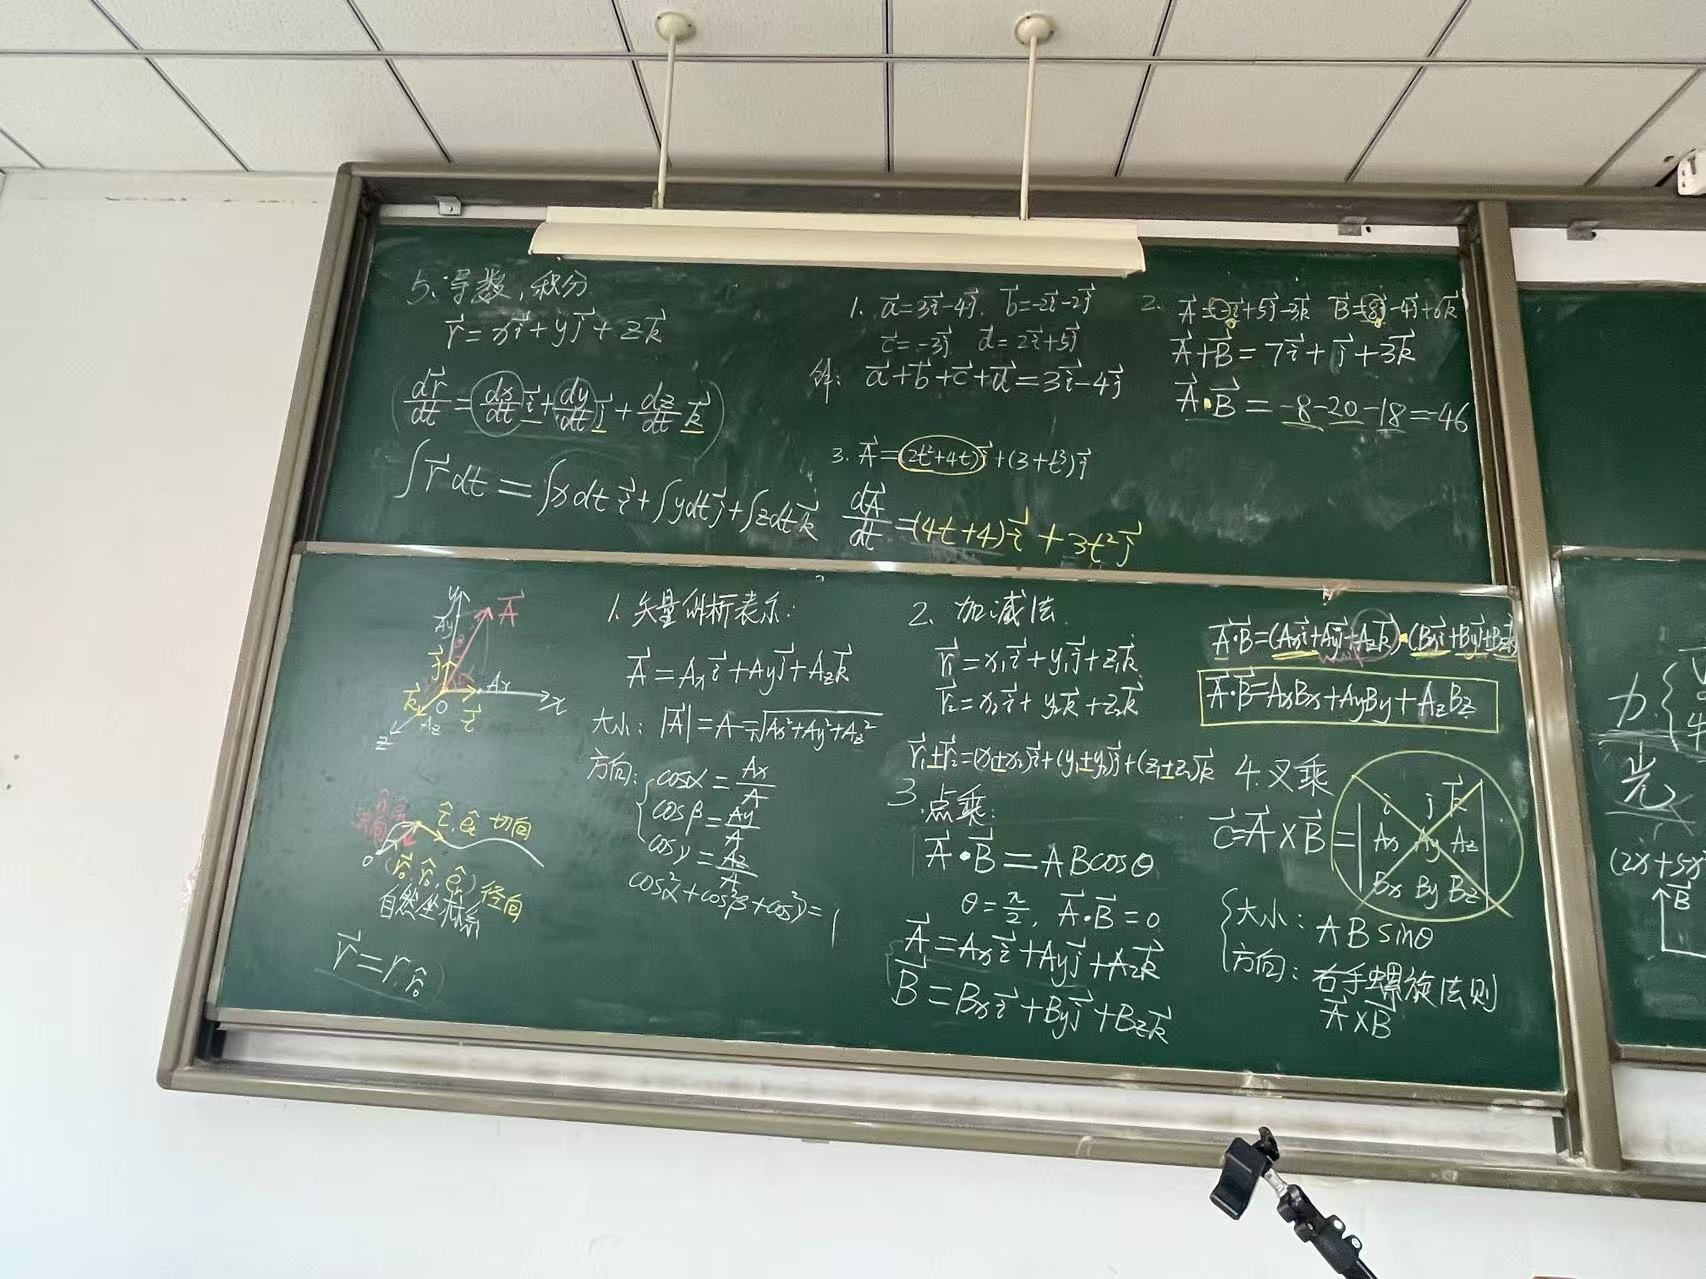 5. 导数, 积分
r⃗ = xi⃗ + yj⃗ + zk⃗
dr⃗/dt = dx/dt i⃗ + dy/dt j⃗ + dz/dt k⃗
∫r⃗dt = ∫xdt i⃗ + ∫ydt j⃗ + ∫zdt k⃗
1. a⃗ = 3i⃗ - 4j⃗, b⃗ = -2i⃗ - 2j⃗
c⃗ = -3j⃗ d⃗ = 2i⃗ + 5j⃗
解: a⃗ + b⃗ + c⃗ + d⃗ = 3i⃗ - 4j⃗
2. A⃗ = -i⃗ + 5j⃗ - 3k⃗ B⃗ = 8i⃗ - 4j⃗ + 6k⃗
A⃗ + B⃗ = 7i⃗ + j⃗ + 3k⃗
A⃗·B⃗ = -8 - 20 - 18 = -46
3. A⃗ = (2t²+4t)i⃗ + (3+t³)j⃗
dA⃗/dt = (4t+4)i⃗ + 3t²j⃗
y
A⃗
Ay
j⃗
k⃗
O
Ax
x
i⃗
Az
z
τ⃗, êτ 切向
o
径向
自然坐标系
r⃗ = r r̂₀
1. 矢量解析表示:
A⃗ = Axi⃗ + Ayj⃗ + Azk⃗
大小: |A⃗| = A = √Ax²+Ay²+Az²
方向: cosα = Ax/A
cosβ = Ay/A
cosγ = Az/A
cos²α + cos²β + cos²γ = 1
2. 加减法
r⃗₁ = x₁i⃗ + y₁j⃗ + z₁k⃗
r⃗₂ = x₂i⃗ + y₂k⃗ + z₂k⃗
r⃗₁ ± r⃗₂ = (x₁±x₂)i⃗ + (y₁±y₂)j⃗ + (z₁±z₂)k⃗
3. 点乘:
A⃗·B⃗ = ABcosθ
θ = π/2, A⃗·B⃗ = 0
A⃗ = Axi⃗ + Ayj⃗ + Azk⃗
B⃗ = Bxi⃗ + Byj⃗ + Bzk⃗
A⃗·B⃗ = (Axi⃗+Ayj⃗+Azk⃗)·(Bxi⃗+Byj⃗+Bzk⃗
A⃗·B⃗ = AxBx + AyBy + AzBz
4. 叉乘
c⃗ = A⃗ × B⃗ =
i j k⃗
Ax Ay Az
Bx By Bz
大小: ABsinθ
方向: 右手螺旋法则
A⃗×B⃗
力
光
(2x+5x
B⃗